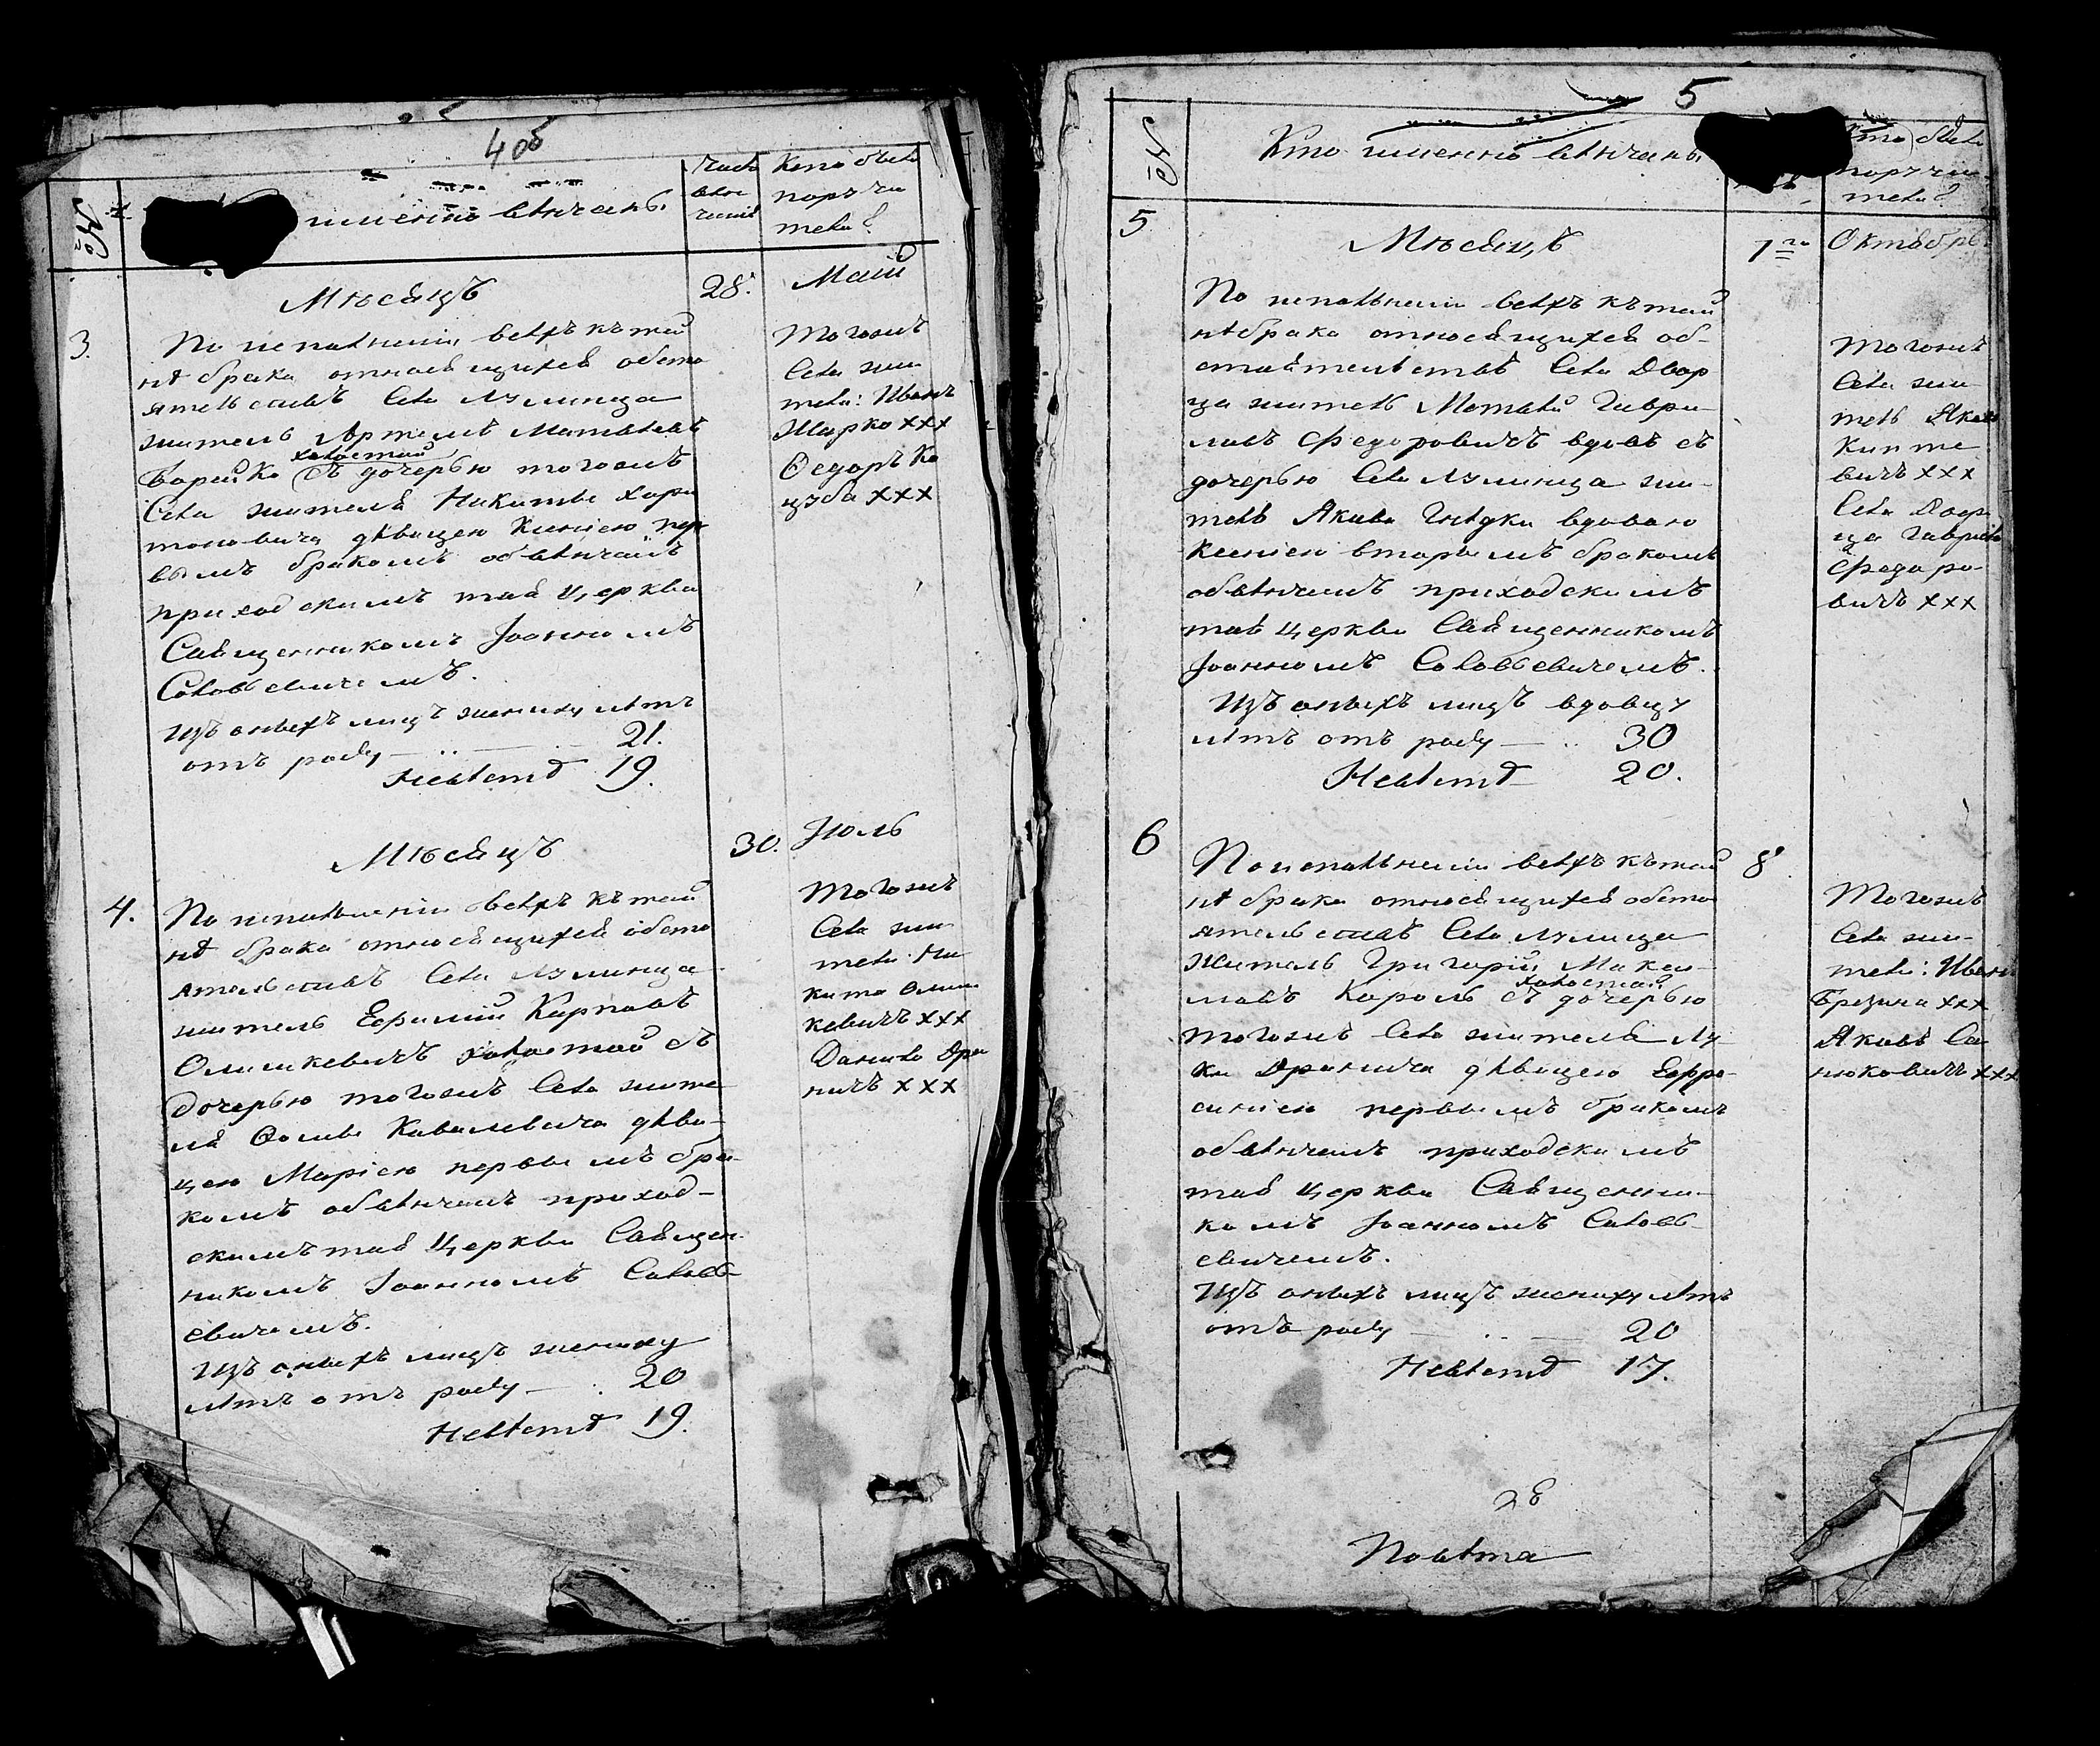 4об
№
именно венчаны
Числ
венчания
Кто были
поручи
тели?
Месяцъ
28.
Май
3.
По исполнении всехъ къ тай
не брака относящихся обсто
ятельствъ Села Лунинца
житель Артемъ Матвеевъ
холостый
Борейко съ дочерью тогожъ
Села жителя Никиты Хари
тоновича девицею Ксениею пер
вымъ бракомъ обвенчанъ
приходскимъ тоя Церкви
Священникомъ Іоанномъ
Соловьевичемъ.
Изъ оныхъ лицъ жениху летъ
отъ роду — 21.
Невесте 19.
Тогожъ
Села жи
тели: Иванъ
Жарко ххх
Федоръ Ко
цуба ххх
Месяцъ
30.
Іюль
4.
По исполнении всехъ къ тай
не брака относящихся обсто
ятельствъ Села Лунинца
житель Ефимій Карповъ
Олишкевичъ холостый съ
дочерью тогожъ Села жите
ля Фомы Ковалевича деви-
цею Маріею первымъ бра-
комъ обвенчанъ приход-
скимъ тоя Церкви Священ-
никомъ Іоанномъ Соловь-
евичемъ.
Изъ оныхъ лицъ жениху
летъ отъ роду — 20
Невесте 19.
Тогожъ
Села жи
тели: Ни
кита Олиш
кевичъ ххх
Данило Дра
ничъ ххх
5
№
Кто именно венчаны
Кто были
поручи-
тели?
5
Месяцъ
1го
Октябрь
По исполнении всехъ къ тай
не брака относящихся об-
стоятельствъ Села Двор
ца житель Матвей Гаври-
ловъ Федоровичъ вдовъ съ
дочерью Села Лунинца жи-
теля Якова Гнедки вдовою
Ксениею вторымъ бракомъ
обвенчанъ приходскимъ
тоя Церкви Священникомъ
Іоанномъ Соловьевичемъ.
Изъ оныхъ лицъ вдовцу
летъ отъ роду — 30
Невесте 20.
Тогожъ
Села жи-
тель Яковъ
вичъ ххх
Села Двор
ца Гаврило
Федоро-
вичъ ххх
6
8
По исполнении всехъ къ тай
не брака относящихся обсто
ятельствъ Села Лунинца
житель Григорій Макси-
холостый
мовъ Король съ дочерью
тогожъ Села жителя Лу-
ки Дранича девицею Евфро-
синіею первымъ бракомъ
обвенчанъ приходскимъ
тоя Церкви Священни-
комъ Іоанномъ Соловь-
евичемъ.
Изъ оныхъ лицъ жениху летъ
отъ роду — 20
Невесте 17.
Тогожъ
Села жи-
тели: Иванъ
Брезина ххх
Яковъ Са
нюковичъ ххх
28